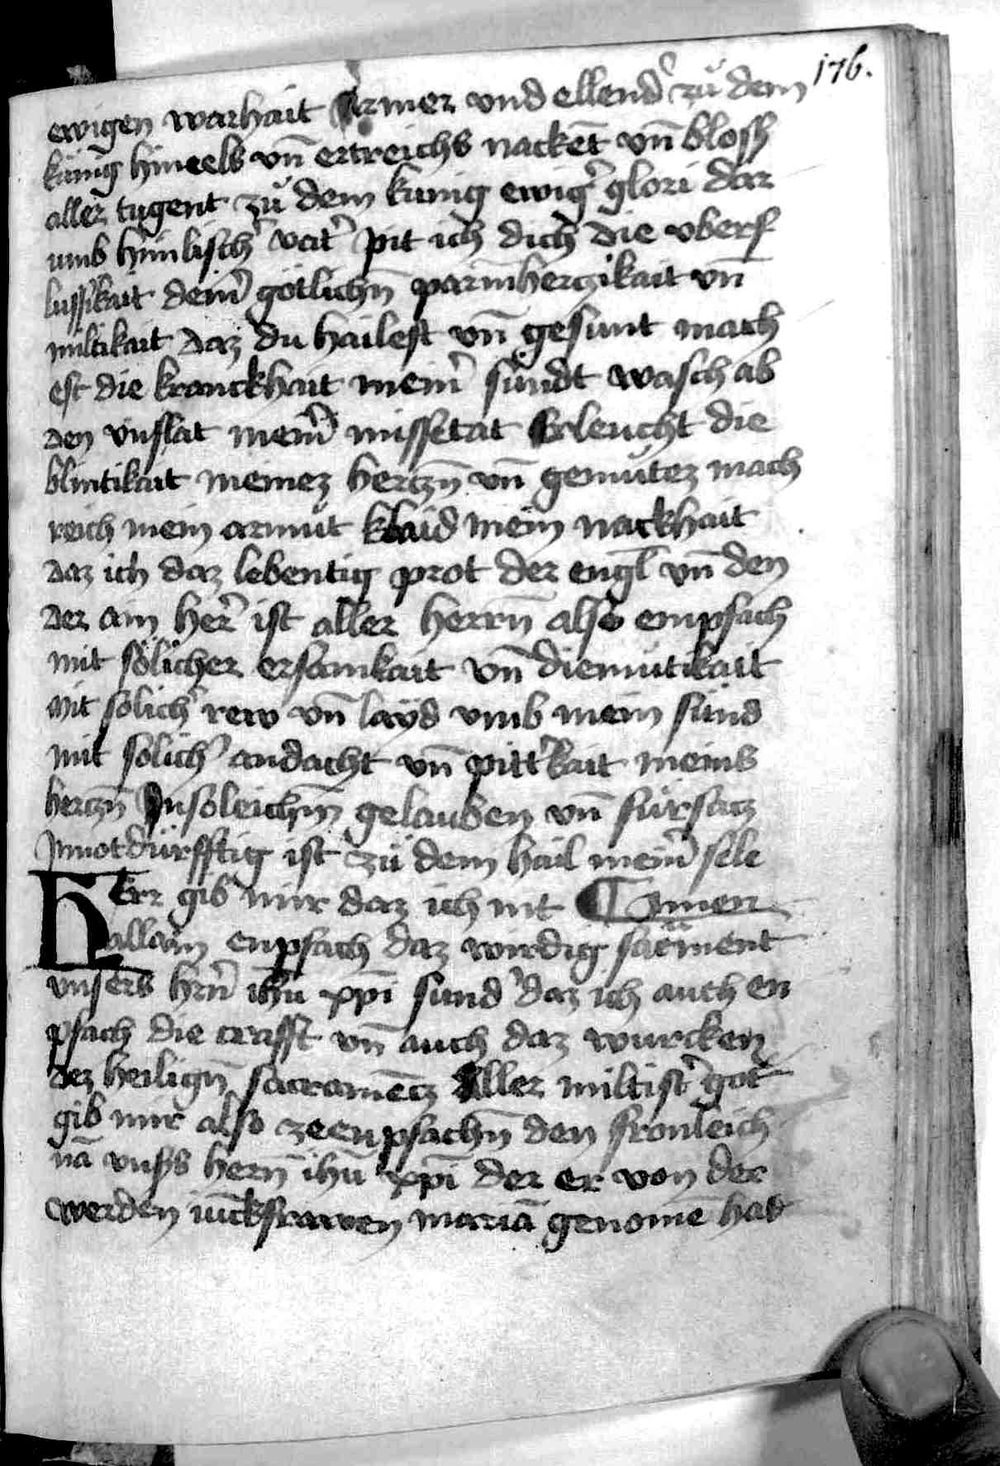 176.
ewigen warhait Armer vnd ellend̛ zů dem
kunig himels vn̄ ertreichs nackēt vn̄ bloss
aller tugent zů dem kunig ewig̛ glori dar
umb himlisch̛ vat̛ pit ich dich die vberf
lussikait dein̛ götlichn̄ parmhertzikait vn̄
miltikait daz du hailest vn̄ gesunt mach
est die kranckhait mein̛ sündt wasch ab
den vnflat mein̛ missetat Erleucht die
blintikait meinez hertzn̄ vn̄ gemütez mach
reich mein armůt klaid mein nackhait
daz ich daz lebentig prot der engl̄ vn̄ den
der ain her̄ ist aller herrn̄ also empfach
mit sölicher ersamkait vn̄ diemütikait
mit sölich̛ rew vn̄ layd vmb mein sünd
mit sölich̛ andacht vn̄ pitt̛kait meins
hertzn̄ Jn soleichm̄ gelauben vn̄ fürsatz
Jn notdürfftig ist zů dem hail mein̛ sele
HErr gib mir daz ich nit ¶ Amen
allain enpfach daz wirdig sac̄ment
vnsers hrn̄ ihū xpī sund̛ daz ich auch en
pfach die crafft vn̄ auch daz wurcken
dez heilign̄ sacramētz Aller miltist̛ got
gib mir also ze enpfachn̄ den fronleich
nā vnsꝰs hern̄ ihū xpī der er von der
werden iūckfrawen mariā genomē hat